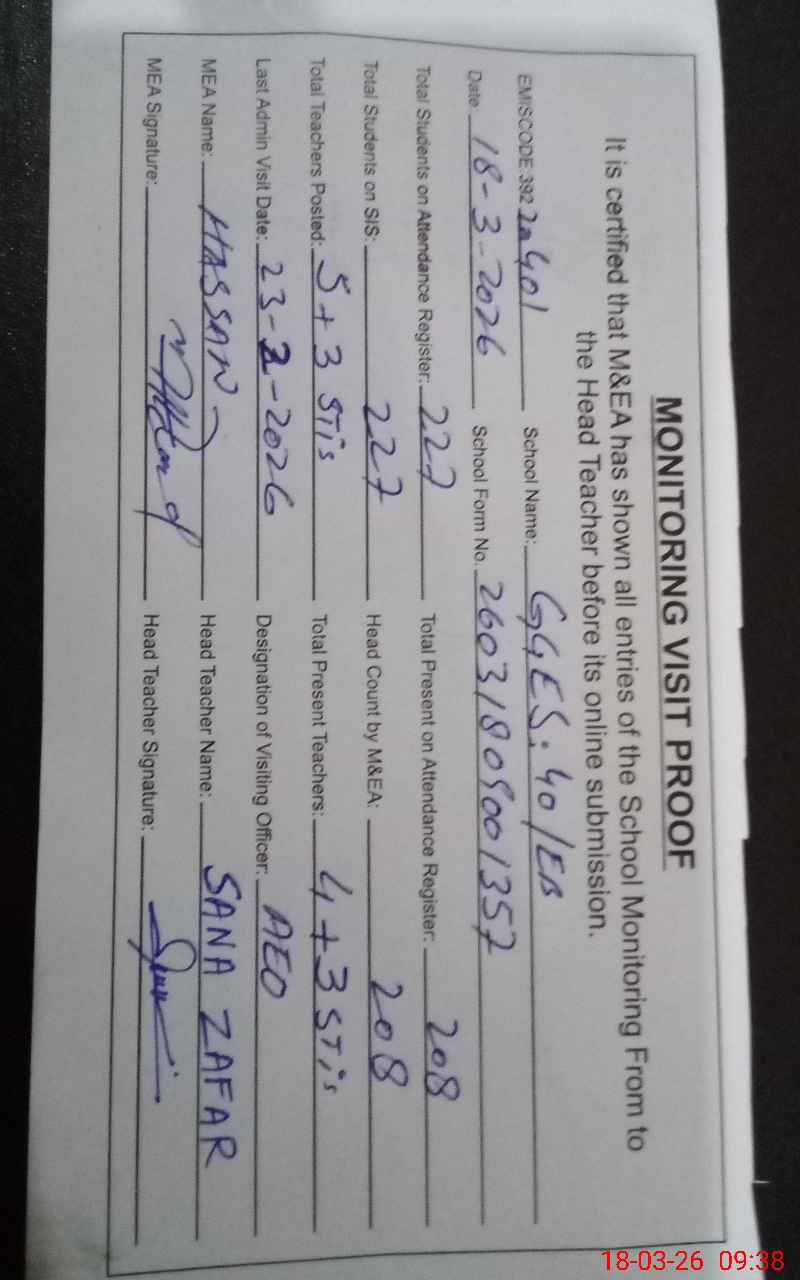 MONITORING VISIT PROOF
It is certified that M&EA has shown all entries of the School Monitoring From to
the Head Teacher before its online submission.
EMISCODE:392 School Name: GGES. 40/EB
Date: 18-3-2026 School Form No. 26031809001357
Total Students on Attendance Register: 227 Total Present on Attendance Register: 208
Total Students on SIS: 227 Head Count by M&EA: 208
Total Teachers Posted: 5+3 STi's Total Present Teachers: 4+3 STi's
Last Admin Visit Date: 23-2-2026 Designation of Visiting Officer: AEO
MEA Name: HASSAN Head Teacher Name: SANA ZAFAR
MEA Signature: Head Teacher Signature:
18-03-26 09:38